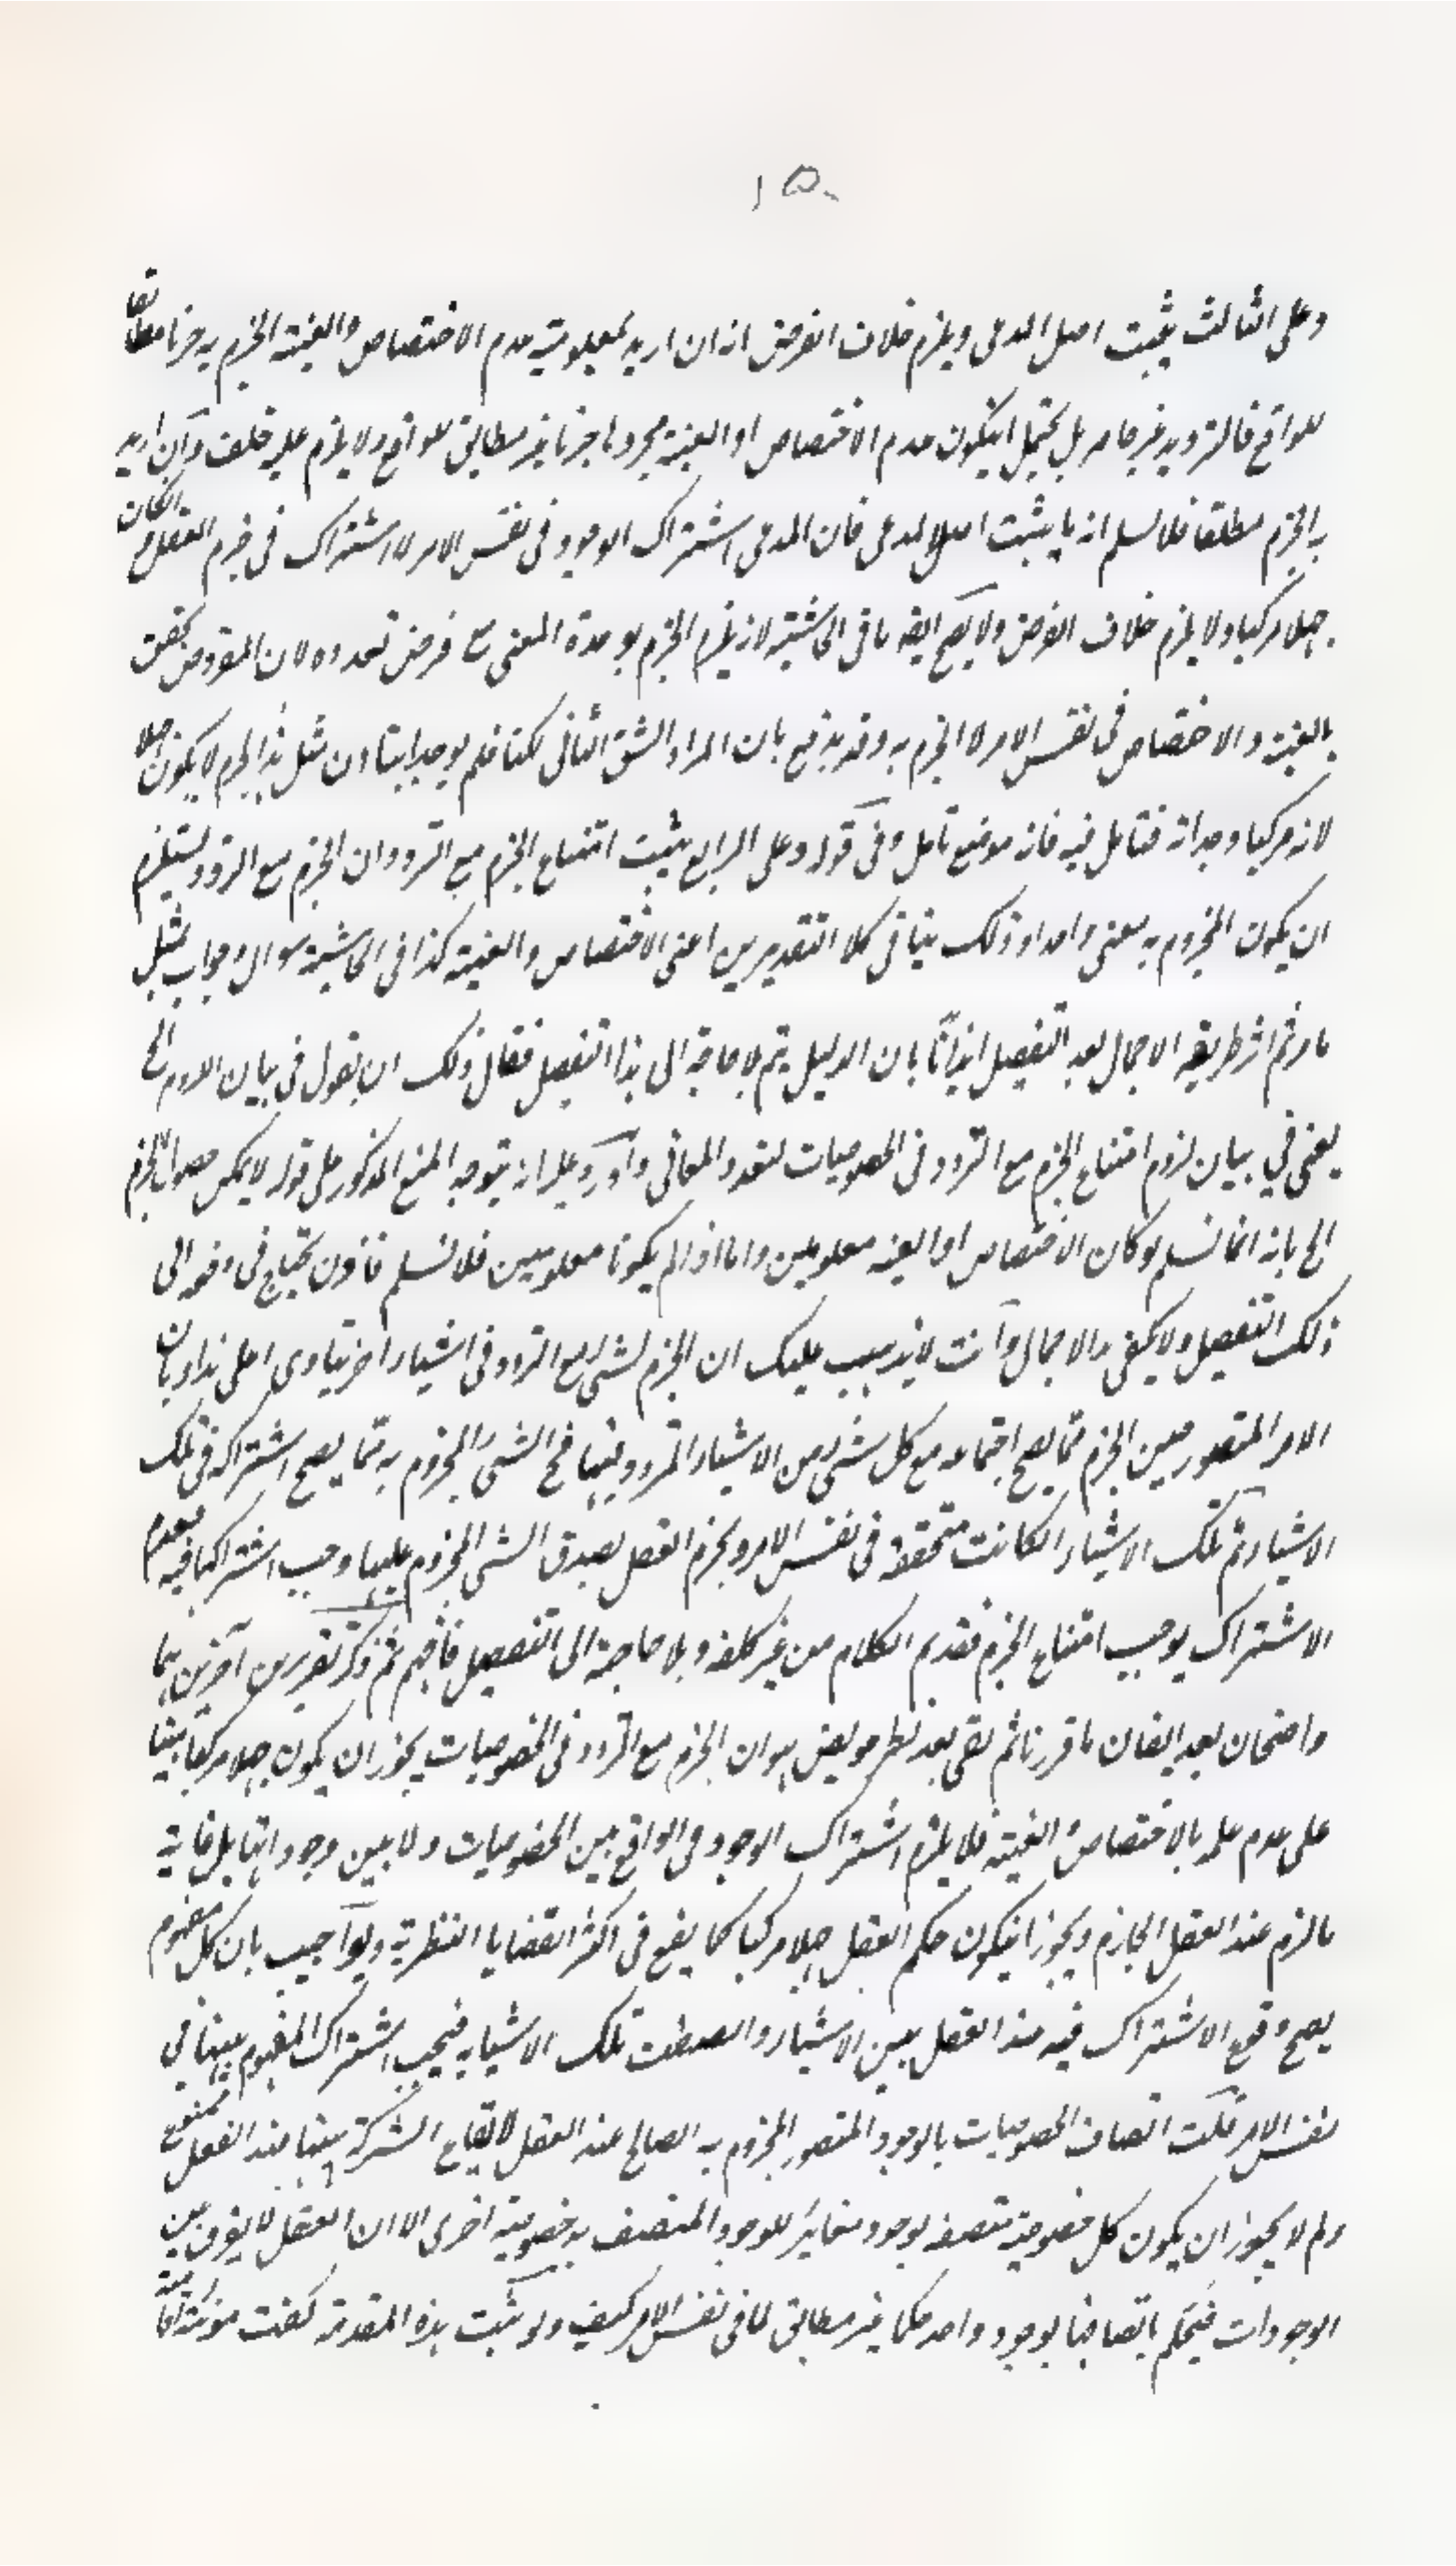 ١٥٠
وعلى الثالث يثبت اصل المدعى ويلزم خلاف الفرض انه ان اريد بمعلومية عدم الاختصاص والعينية الجزم به جزما مطابقا
للواقع فالترديد غير حاصر بل يحتمل ايكون عدم الاختصاص او العينية مجزوما جزما غير مطابق للواقع ولا يلزم عليه خلف وان اريد
به الجزم مطلقا فلا نسلم انه يثبت اصل المدعى فان المدعى اشتراك الوجود فى نفس الامر لا اشتراك فى جزم العقل وانكان
جهلا مركبا ولا يلزم خلاف الفرض ولا يصح ايضا ما فى الحاشية لانه يلزم الجزم بوحدة المعنى مع فرض تعدده لان المفروض تحقق
بالعينية والاختصاص فى نفس الامر لا الجزم به وقد يدفع بان المراد الشق الثانى لكنا نعلم بوجداننا ان مثل هذا الجزم لا يكون جهلا
لانه مركبا وجدانه فتامل فيه فانه موضع تامل وفى قوله وعلى الرابع يثبت امتناع الجزم مع التردد وان الجزم مع التردد يستلزم
ان يكون المجزوم به معنى واحدا وذلك ينافى كلا التقديرين اعنى الاختصاص والعينية كذا فى الحاشية سوال وجواب مثل
ما مر ثم اثر طريقه الاجمال بعد التفصيل ايذانا بان الدليل يتم بلا حاجة الى هذا التفصيل فقال ذلك ان يقول فى بيان اللزوم الخ
يعنى في بيان لزوم امتناع الجزم مع التردد فى الخصوصيات لتعدد المعانى واورد عليه انه يتوجه المنع المذكور على قوله لا يمكن حصول الجزم
الخ بانه انما نسلم لو كان الاختصاص او العينه معلومين واما اذا لم يكونا معلومين فلا نسلم فاذن يحتاج فى دفعه الى
ذلك التفصيل ولا يكفى الاجمال وانت لا يذهب عليك ان الجزم لشئ مع التردد فى اشياء اخر ينادى اعلى نداء بان
الامر المتصور حين الجزم مما يصح اجتماعه مع كل شئ من الاشياء المتردد فيها فح الشئ المجزوم به مما يصح اشتراكه فى تلك
الاشياء ثم تلك الاشياء الكانت متحققة فى نفس الامر ويجزم العقل بصدق الشى المجزوم عليها وجب اشتراكها فيه فعدم
الاشتراك يوجب امتناع الجزم فقدتم الكلام من غير كلفه وبلا حاجة الى التفصيل فافهم ثم ذكر تقريرين آخرين بما
واضحان بعد ايقان ما قررنا ثم بقى بعد نظر عويص هو ان الجزم مع التردد فى الخصوصيات يجوز ان يكون جهلا مركبا مبنيا
على عدم علمه بالاختصاص والعينية فلا يلزم اشتراك الوجود فى الواقع بين الخصوصيات ولا بين وجوداتها بل غاية
ما لزم عند العقل الجازم ويجوز ايكون حكم العقل جهلا مركبا كما يقع فى اكثر القضايا النظرية ولو اجيب بان كل مفهوم
يصح وقوع الاشتراك فيه عند العقل بين الاشياء تلك الاشياء به فيجب اشتراك المفهوم بينها في
نفس الامر قلت اتصاف الخصوصيات بالوجود المتصور المجزوم به الصالح عند العقل لايقاع الشركة بينها عند العقل ممنوع
ولم لا يجوز ان يكون كل خصوصية متصفه بوجود مغاير للوجود المتصف به خصوصية اخرى الا ان العقل لا يفرق بين
الوجودات فيحكم باتصافها بوجود واحد حكما غير مطابق لما فى نفس الامر كيف ولو ثبت هذه المقدمة لكفت مونة